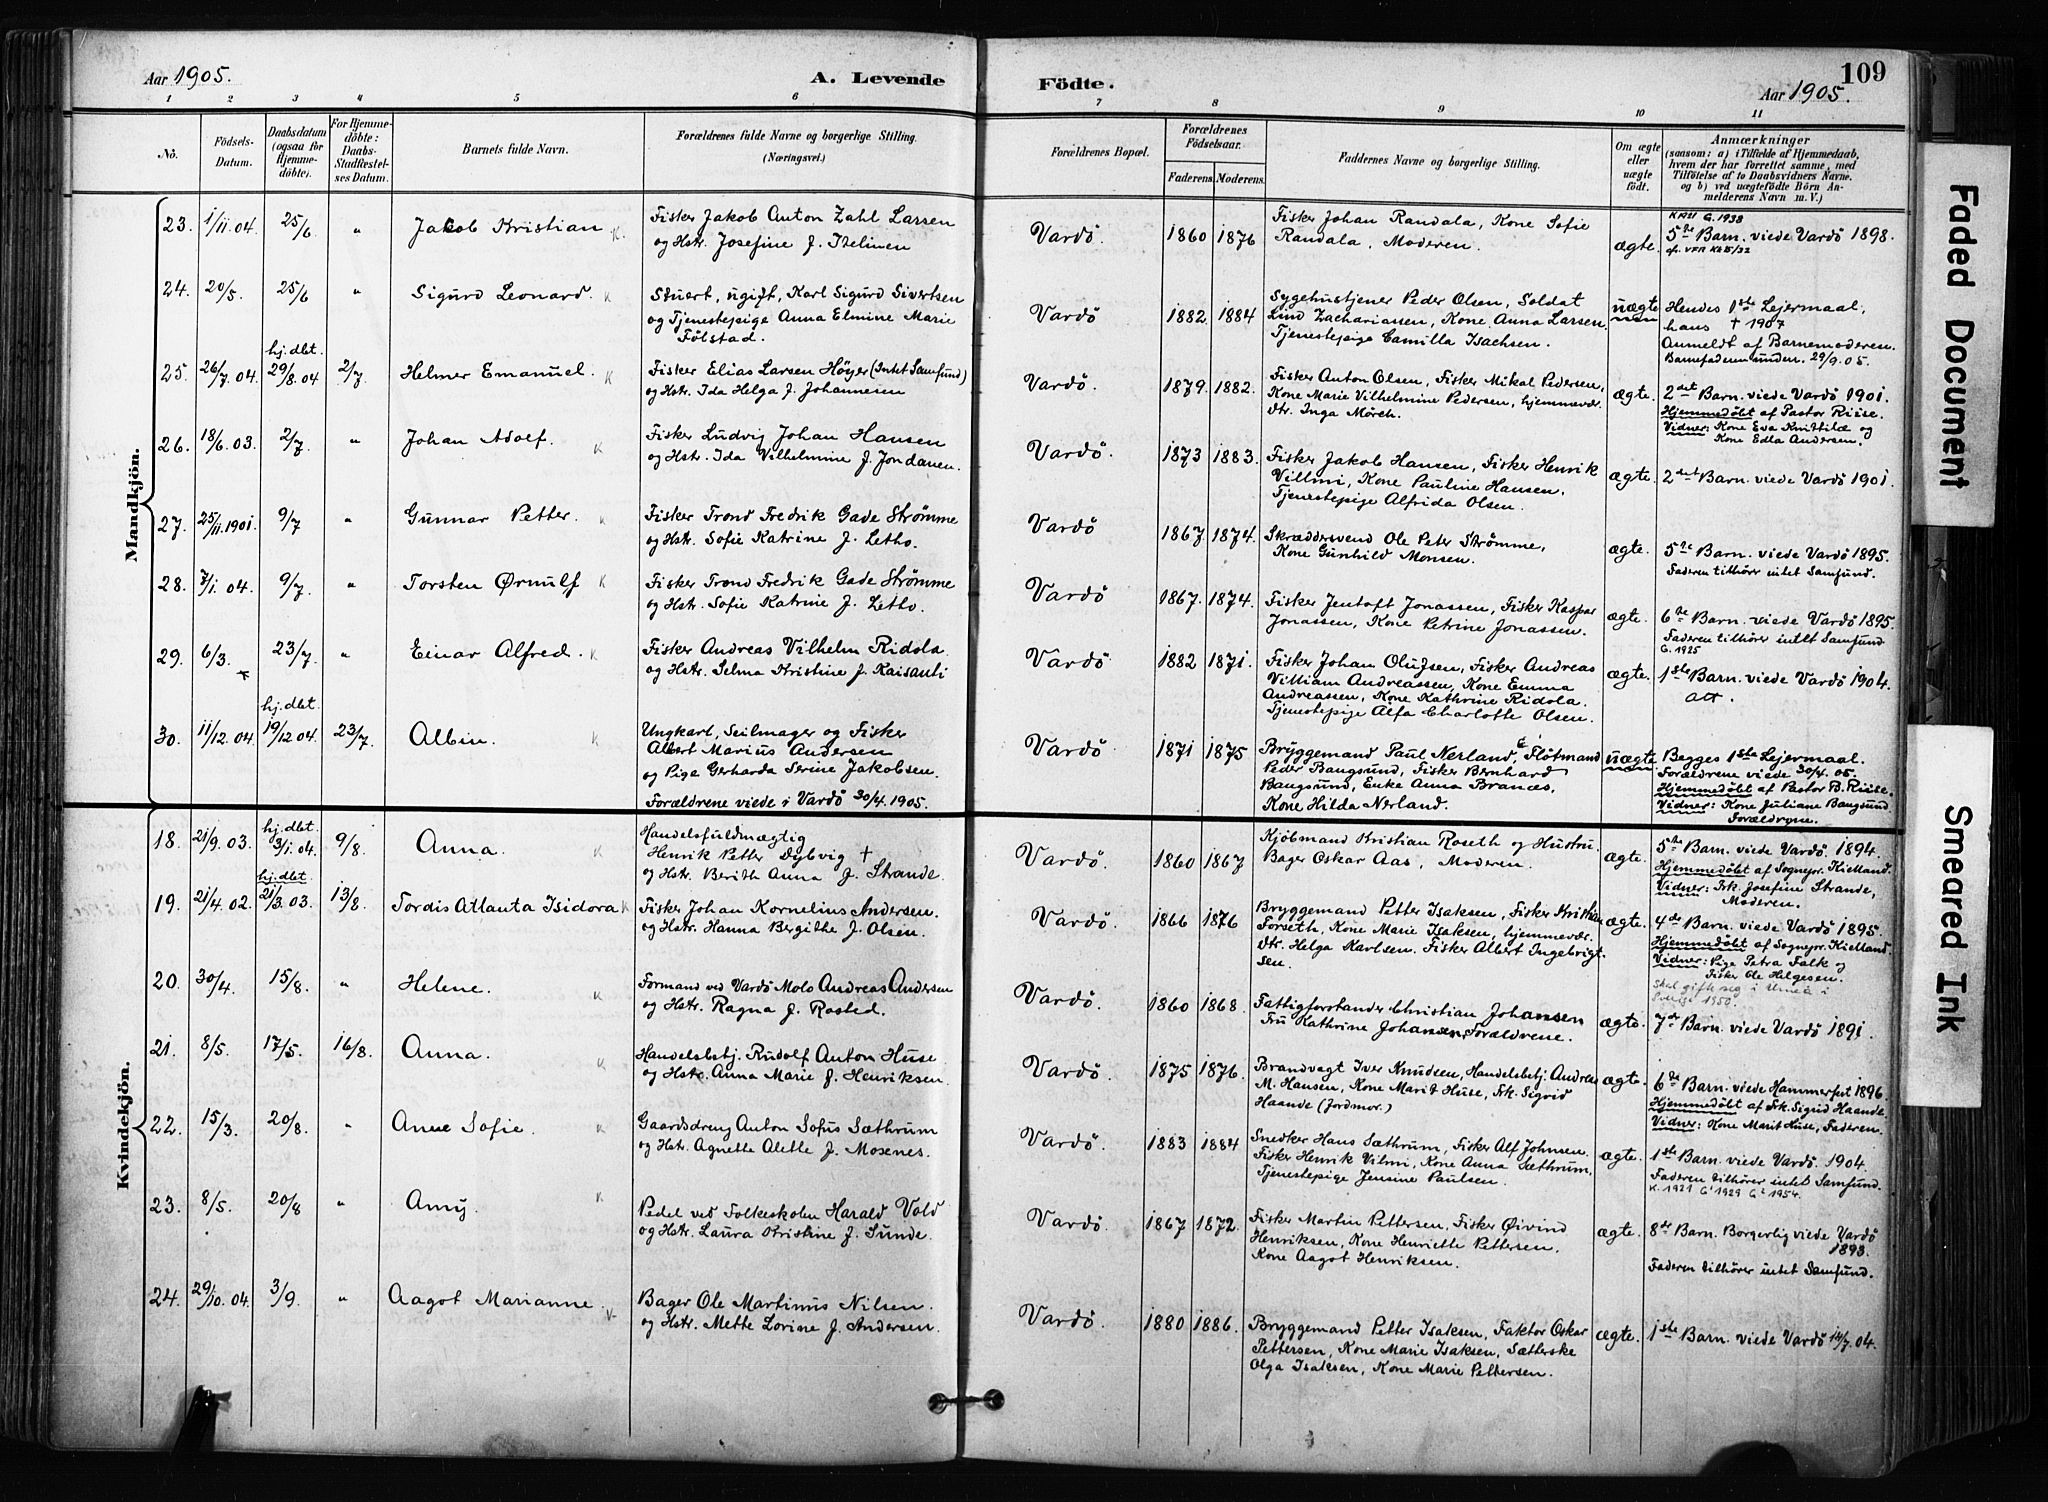 Aar 1905.
A. Levende Födte.
109
Aar 1905.
1 2 3 4 5 6 7 8 9 10 11
No.
Födsels-Datum.
Daabsdatum (ogsaa for Hjemmedöbte).
For Hjemmedöbte: Daabs-Stadfestelses Datum.
Barnets fulde Navn.
Forældrenes fulde Navne og borgerlige Stilling.
(Næringsvei.)
Forældrenes Bopæl.
Forældrenes Födselsaar.
Faderens. Moderens.
Faddernes Navne og borgerlige Stilling.
Om ægte eller uægte födt.
Anmærkninger
(saasom: a) i Tilfælde af Hjemmedaab, hvem der har forrettet samme, med Tilföielse af to Daabsvidners Navne. og b) ved uægtefödte Börn Anmelderens Navn m. V.)
Mandkjön.
23. 1/11 04. 25/6 " Jakob Kristian
Fisker Jakob Anton Zahl Larsen
og Hstr. Josefine f. Itelinen
Vardö. 1860 1876
Fisker Johan Randala, Kone Sofie
Randala, Moderen.
ægte.
G. 1938
5te Barn. viede Vardö 1898.
24. 20/5. 25/6 " Sigurd Leonard.
Stuert, ugift, Karl Sigurd Sivertsen
og Tjenestepige Anna Elmine Marie
Fölstad.
Vardö 1882 1884
Sygehustjener Peder Olsen, Soldat
Lund Zachariassen, Kone Anna Larsen.
Tjenestepige Camilla Isachsen.
uægte
Hendes 1ste Lejermaal,
hans † 1907
Anmeldt af Barnemoderen.
Barnefaderen underr. 29/9.05.
25. 26/7. 04. hj.dbt. 29/8.04 2/7 Helmer Emanuel.
Fisker Elias Larsen Höyer (Intet Samfund)
og Hstr. Ida Helga f. Johannesen
Vardö. 1879. 1882.
Fisker Anton Olsen, Fisker Mikal Pedersen,
Kone Marie Vilhelmine Pedersen, hjemmevær.
dtr. Inga Mörch.
ægte.
2det Barn. viede Vardö 1901.
Hjemmedöbt af Pastor Riise.
Vidner: Kone Eva Knittilæ og
Kone Edla Andersen.
26. 18/6. 03. 2/7. " Johan Adolf.
Fisker Ludvig Johan Hansen
og Hstr. Ida Vilhelmine f. Jondanen.
Vardö. 1873 1883.
Fisker Jakob Hansen, Fisker Henrik
Villmi, Kone Pauline Hansen.
Tjenestepige Alfrida Olsen.
ægte.
2det Barn. viede Vardö 1901.
27. 25/11.1901. 9/7 " Gunnar Petter.
Fisker Trond Fredrik Gade Strömme
og Hstr. Sofie Katrine f. Letho.
Vardö 1867. 1874.
Skræddersvend Ole Peter Strömme,
Kone Gunhild Monsen.
ægte.
5te Barn. viede Vardö 1895.
Faderen tilhører intet Samfund.
28. 7/1. 04. 9/7. " Torsten Ørnulf
Fisker Trond Fredrik Gade Strömme
og Hstr. Sofie Katrine f. Letho.
Vardö 1867. 1874.
Fisker Jentoft Jonassen, Fisker Kaspar
Jonassen, Kone Petrine Jonassen.
ægte.
6te Barn. viede Vardö 1895.
Faderen tilhører intet Samfund
G. 1925
29. 6/3. 23/7. " Einar Alfred.
Fisker Andreas Vilhelm Ridola
og Hstr. Selma Kristine f. Kaisanti
Vardö 1882 1871.
Fisker Johan Olufsen, Fisker Andreas
William Andreassen, Kone Emma
Andreassen, Kone Kathrine Ridola.
Tjenestepige Alfa Charlotte Olsen.
ægte.
1ste Barn. viede Vardö 1904.
30. 11/12.04. hj.dbt. 19/12 04. 23/7. Albin.
Ungkarl, Seilmager og Fisker
Albert Marius Andersen
og Pige Gerharda Serine Jakobsen.
Forældrene viede i Vardö 30/4.1905.
Vardö 1871 1875
Bryggemand Paul Nerland, Flötmand
Peder Baugsund, Fisker Bernhard
Baugsund, Enke Anna Brances,
Kone Hilda Nerland.
uægte
Begges 1ste Lejermaal.
Forældrene viede 30/4. 05.
Hjemmedöbt af Pastor B. Riise.
Vidner: Kone Juliane Baugsund
Forældrene.
Kvindekjön.
18. 21/9. 03. hj.dbt. 3/1.04. 9/8. Anna.
Handelsfuldmægtig
Henrik Petter Dybvig †
og Hstr. Berith Anna f. Strande.
Vardö. 1860 1867
Kjöbmand Kristian Roseth og Hustru.
Bager Oskar Aas, Moderen.
ægte.
5te Barn. viede Vardö. 1894.
Hjemmedöbt af Sognepr. Kielland.
Vidner: Frk. Josefine Strande,
Moderen.
19. 21/4. 02. hj.dbt. 21/3.03. 13/8. Tordis Atlanta Isidora
Fisker Johan Kornelius Andersen.
og Hstr. Hanna Bergithe f. Olsen.
Vardö. 1866 1876
Bryggemand Petter Isaksen, Fisker Kristian
Forseth, Kone Marie Isaksen, hjemmevær.
dtr. Helga Karlsen. Fisker Albert Ingebrigt-
sen.
ægte.
4de Barn. viede Vardö 1895.
Hjemmedöbt af Sognepr. Kielland.
Vidner: Pige Petra Falk og
Fisker Ole Helgesen.
Skal gifte seg i Umeå i
Sverige 1950.
20. 30/4. 15/8. " Helene.
Formand ved Vardö Molo Andreas Andersen
og Hstr. Ragna f. Rosted.
Vardö. 1860 1868.
Fattigforstander Christian Johansen
Fru Kathrine Johansen, Forældrene.
ægte.
7de Barn. viede Vardö 1891.
21. 8/5. 17/5. 16/8. Anna.
Handelsbstj. Rudolf Anton Huse
og Hstr. Anna Marie f. Henriksen.
Vardö. 1875 1876.
Brandvagt Iver Knudsen, Handelsbstj. Andreas
M. Hansen, Kone Marit Huse, Frk. Sigrid
Haande (Jordmor.)
ægte.
6te Barn. viede Hammerfest 1896.
Hjemmedöbt af Frk. Sigrid Haande.
Vidner: Kone Marit Huse, Faderen.
22. 15/3. 20/8. " Anne Sofie.
Gaardsdreng Anton Sofus Sæthrum
og Hstr. Agnette Alette f. Mosenes.
Vardö. 1883 1884
Snedker Hans Sæthrum, Fisker Alf Johnsen.
Fisker Henrik Vilmi, Kone Anna Sæthrum,
Tjenestepige Jensine Paulsen.
ægte.
1ste Barn. viede Vardö. 1904.
Faderen tilhører intet Samfund.
K. 1921 G1 1929 G2 1954.
23. 8/5. 20/8 " Amy.
Pedel ved Folkeskolen Harald Vold
og Hstr. Laura Kristine f. Sunde.
Vardö. 1867 1872.
Fisker Martin Pettersen, Fisker Øivind
Henriksen, Kone Henriette Pettersen.
Kone Aagot Henriksen.
ægte.
8de Barn. Borgerlig viede Vardö
1893.
Faderen tilhører intet Samfund.
24. 29/10. 04. 3/9. " Aagot Marianne.
Bager Ole Martinus Nilsen.
og Hstr. Mette Lorine f. Andersen.
Vardö. 1880 1886.
Bryggemand Petter Isaksen, Faktor Oskar
Pettersen, Kone Marie Isaksen, Sætterske
Olga Isaksen, Kone Marie Pettersen.
ægte.
1ste Barn. viede Vardö 14/7.04.
Faded Document
Smeared Ink